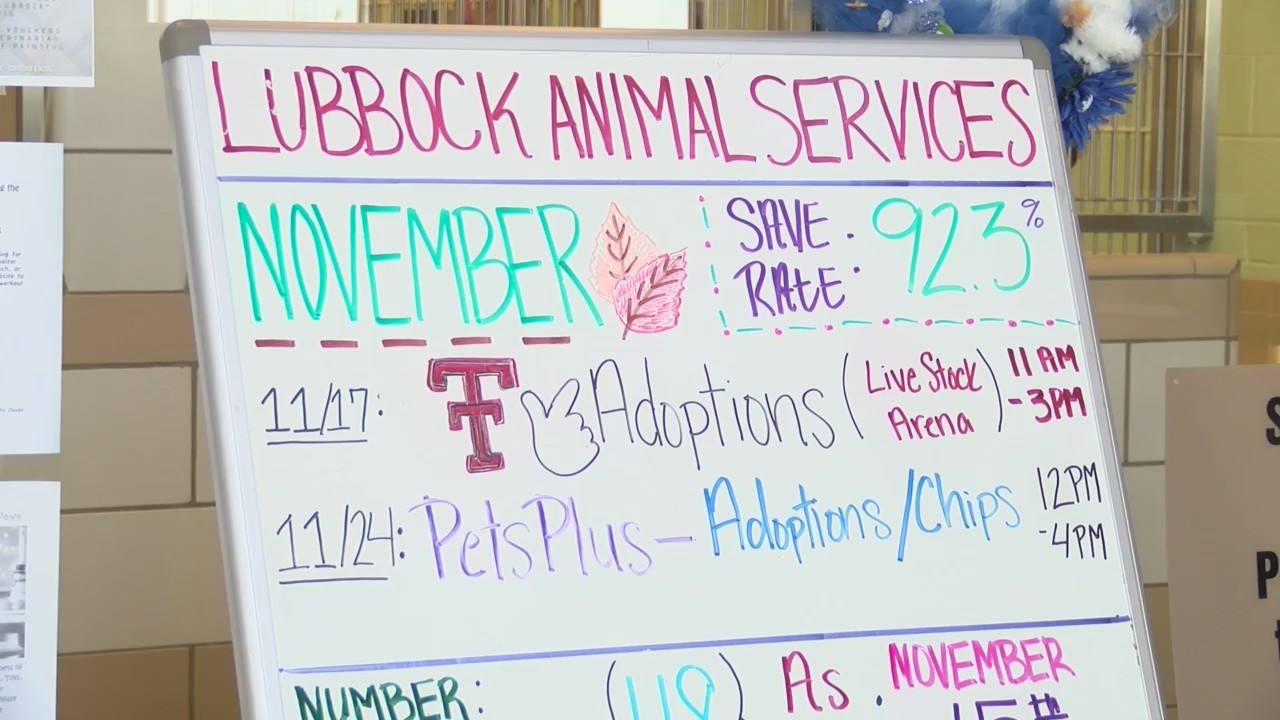 LUBBOCK ANIMAL SERVICES
NOVEMBER
SAVE RATE: 92.3%
11/17: TT Adoptions (Live Stock Arena) 11AM - 3PM
11/24: Pets Plus - Adoptions/Chips 12PM - 4PM
NUMBER: As : NOVEMBER